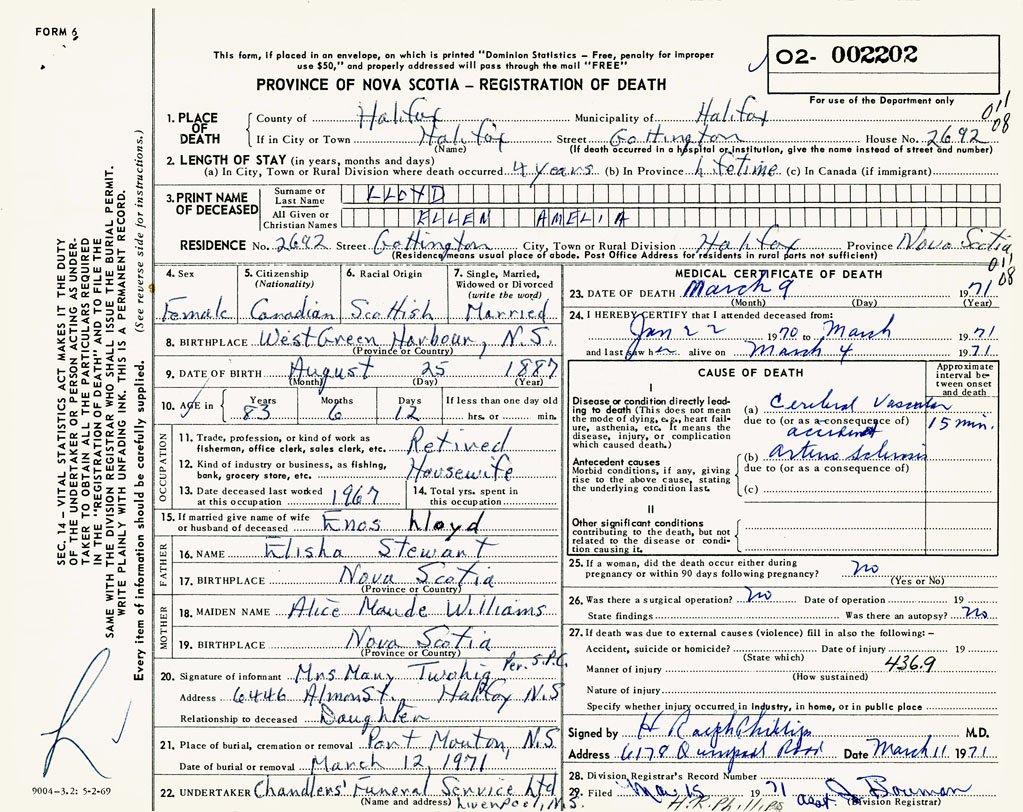 FORM 6
This form, if placed in an envelope, on which is printed "Dominion Statistics – Free, penalty for improper
use $50," and properly addressed will pass through the mail "FREE"
02- 002202
PROVINCE OF NOVA SCOTIA – REGISTRATION OF DEATH
For use of the Department only
011
08
1. PLACE OF DEATH
County of Halifax Municipality of Halifax
If in City or Town Halifax Street Gottington House No. 2692
(Name) (If death occurred in a hospital or institution, give the name instead of street and number)
2. LENGTH OF STAY (in years, months and days)
(a) In City, Town or Rural Division where death occurred 4 years (b) In Province lifetime (c) In Canada (if immigrant)
3. PRINT NAME OF DECEASED
Surname or Last Name LLOYD
All Given or Christian Names ELLEN AMELIA
RESIDENCE No. 2692 Street Gottington City, Town or Rural Division Halifax Province Nova Scotia
(Residence means usual place of abode. Post Office Address for residents in rural parts not sufficient)
011
08
4. Sex
Female
5. Citizenship
(Nationality)
Canadian
6. Racial Origin
Scottish
7. Single, Married,
Widowed or Divorced
(write the word)
Married
8. BIRTHPLACE West Green Harbour, N.S.
(Province or Country)
9. DATE OF BIRTH August 25 1887
(Month) (Day) (Year)
10. AGE in
Years Months Days If less than one day old
83 6 12 hrs. or min.
OCCUPATION
11. Trade, profession, or kind of work as
fisherman, office clerk, sales clerk, etc. Retired
12. Kind of industry or business, as fishing,
bank, grocery store, etc. Housewife
13. Date deceased last worked
at this occupation 1967
14. Total yrs. spent in
this occupation
15. If married give name of wife
or husband of deceased Enos Lloyd
FATHER
16. NAME Elisha Stewart
17. BIRTHPLACE Nova Scotia
(Province or Country)
MOTHER
18. MAIDEN NAME Alice Maude Williams
19. BIRTHPLACE Nova Scotia
(Province or Country)
20. Signature of informant Mrs Mary Twohig Per. S.P.C.
Address 6446 Almon St., Halifax N.S
Relationship to deceased Daughter
21. Place of burial, cremation or removal Port Mouton, N.S.
Date of burial or removal March 12, 1971
22. UNDERTAKER Chandlers' Funeral Service Ltd
(Name and address) Liverpool, N.S.
MEDICAL CERTIFICATE OF DEATH
23. DATE OF DEATH March 9 1971
(Month) (Day) (Year)
24. I HEREBY CERTIFY that I attended deceased from:
Jan 22 1970 to March 1971
and last saw her alive on March 4 1971
CAUSE OF DEATH
Approximate
interval be-
tween onset
and death
I
Disease or condition directly lead-
ing to death (This does not mean
the mode of dying, e.g., heart fail-
ure, asthenia, etc. It means the
disease, injury, or complication
which caused death.)
(a) Cerebral Vascular
due to (or as a consequence of)
accident
15 min.
Antecedent causes
Morbid conditions, if any, giving
rise to the above cause, stating
the underlying condition last.
(b) Arterio Sclerosis
due to (or as a consequence of)
(c)
II
Other significant conditions
contributing to the death, but not
related to the disease or condi-
tion causing it.
25. If a woman, did the death occur either during
pregnancy or within 90 days following pregnancy? no
(Yes or No)
26. Was there a surgical operation? no Date of operation 19
State findings Was there an autopsy? no
27. If death was due to external causes (violence) fill in also the following: –
Accident, suicide or homicide? Date of injury 19
(State which)
436.9
Manner of injury
(How sustained)
Nature of injury
Specify whether injury occurred in industry, in home, or in public place
Signed by H Ralph Phillips M.D.
Address 6178 Quinpool Road Date March 11 1971
28. Division Registrar's Record Number
29. Filed Mar 15 1971 asst. J Bowman
H.R. Phillips (Division Registrar)
SEC. 14 – VITAL STATISTICS ACT MAKES IT THE DUTY
OF THE UNDERTAKER OR PERSON ACTING AS UNDER-
TAKER TO OBTAIN ALL THE PARTICULARS REQUIRED
IN THE "REGISTRATION OF DEATH" AND TO FILE THE
SAME WITH THE DIVISION REGISTRAR WHO SHALL ISSUE THE BURIAL PERMIT.
WRITE PLAINLY WITH UNFADING INK. THIS IS A PERMANENT RECORD.
Every item of information should be carefully supplied. (See reverse side for instructions.)
9004-3.2: 5-2-69